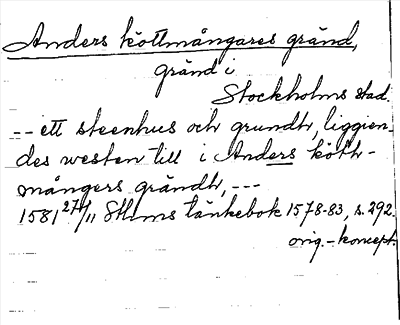 Anders köttmångares gränd,
gränd i
Stockholms stad.
-- ett steenhus och grundtt, liggien-
des westen till i Anders kött-
mångers grändtt, ---
1581 27/11 Sthms tänkebok 1578-83, s. 292.
orig.-koncept.